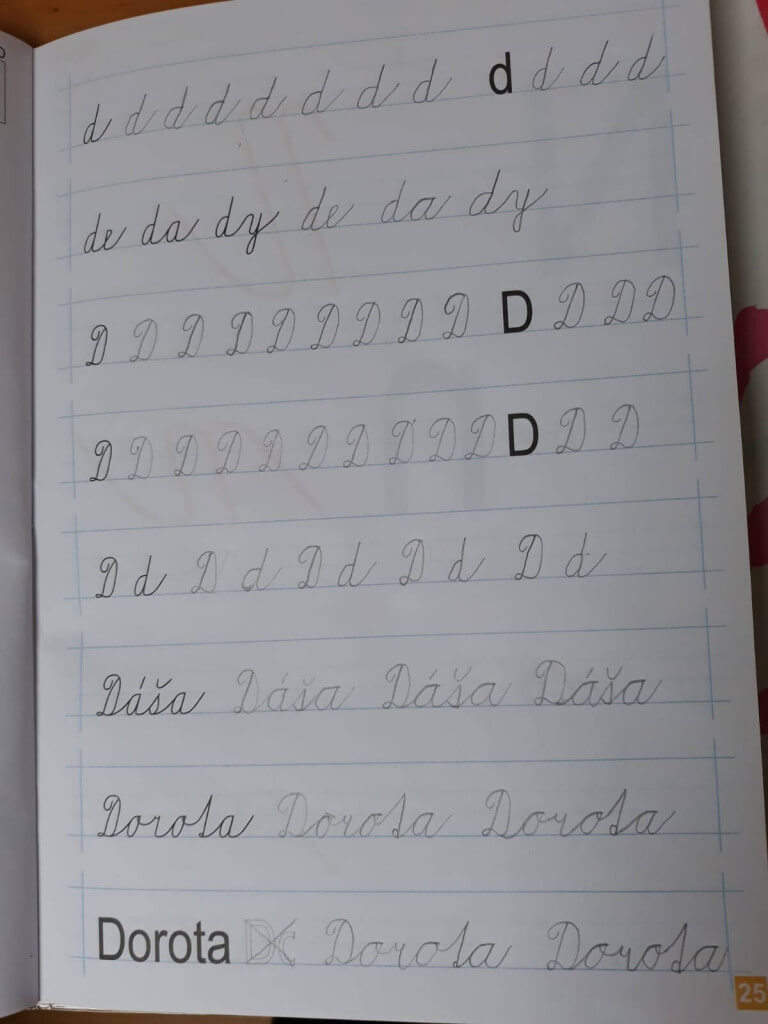 d d d d d d d d d d d d
de da dy de da dy
D D D D D D D D D D D D D
D D D D D D D D D D D D D
D d D d D d D d D d
Dáša Dáša Dáša Dáša
Dorota Dorota Dorota
Dorota Dorota Dorota
25